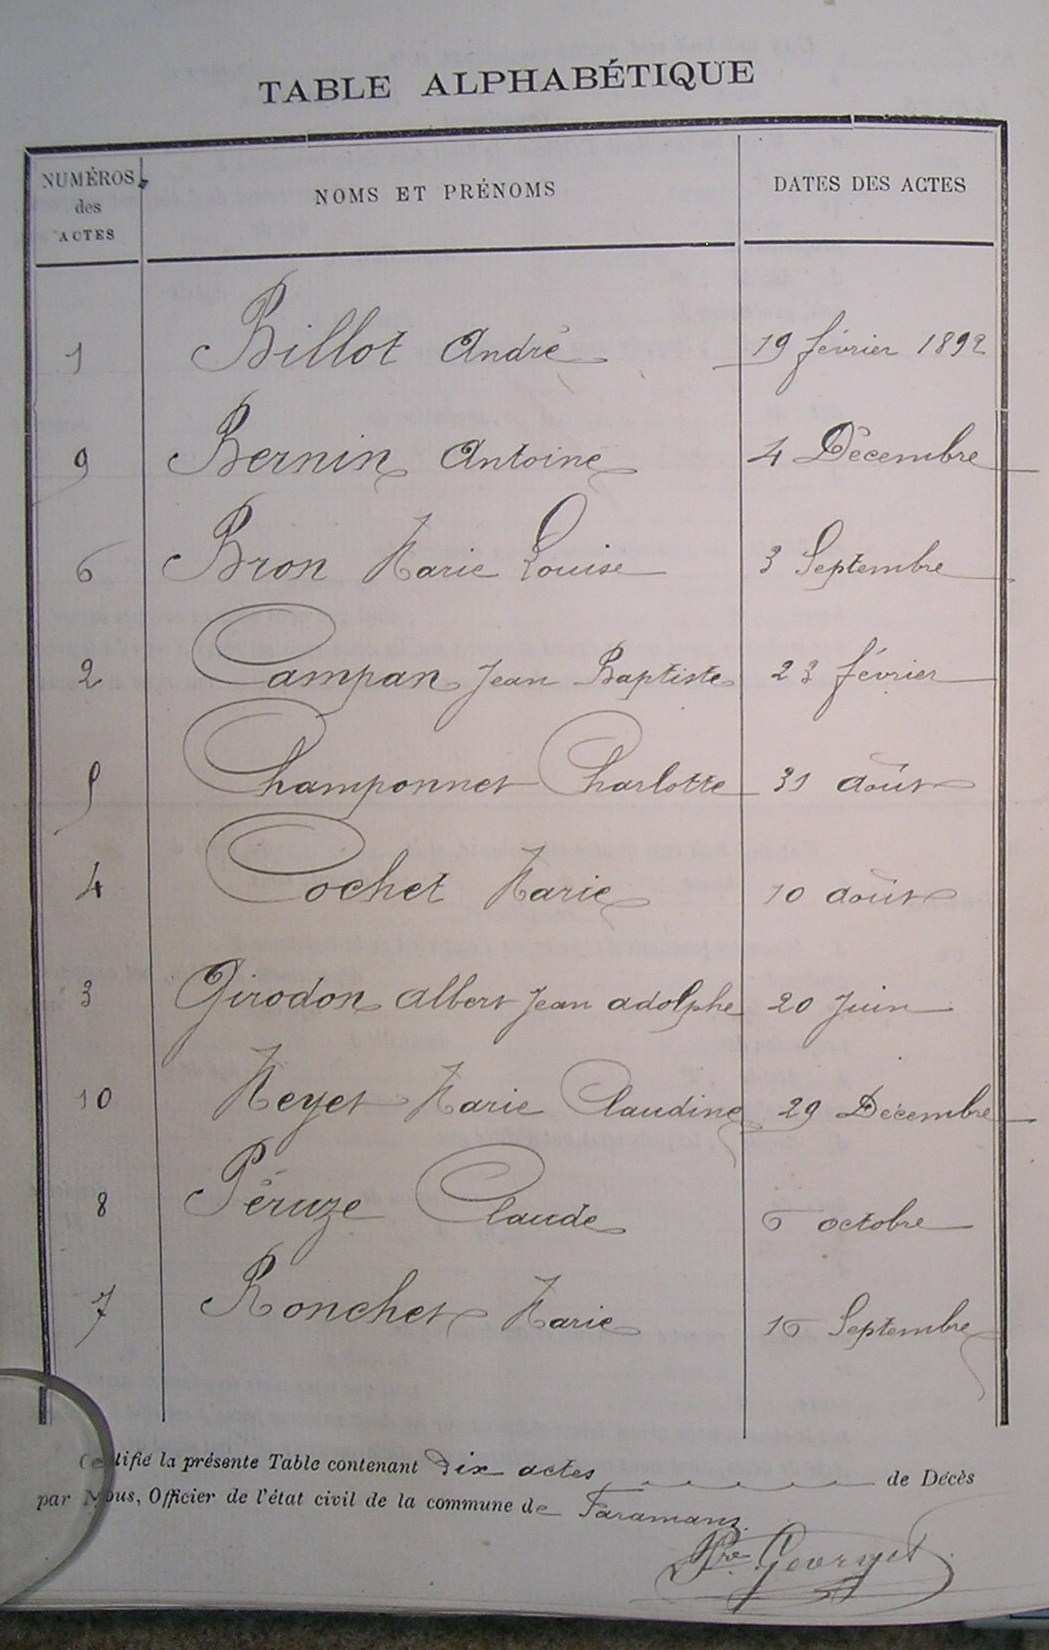 TABLE ALPHABÉTIQUE
NUMÉROS des ACTES NOMS ET PRÉNOMS DATES DES ACTES
1 Billot André 19 février 1892
9 Bernin Antoine 4 Décembre
6 Bron Marie Louise 3 Septembre
2 Campan Jean Baptiste 23 février
5 Champonnet Charlotte 31 août
4 Cochet Marie 10 août
3 Girodon Albert Jean Adolphe 20 Juin
10 Meyet Marie Claudine 29 Décembre
8 Péruze Claude 6 octobre
7 Ronchet Marie 16 Septembre
Certifié la présente Table contenant dix actes de Décès
par Nous, Officier de l'état civil de la commune de Faramans.